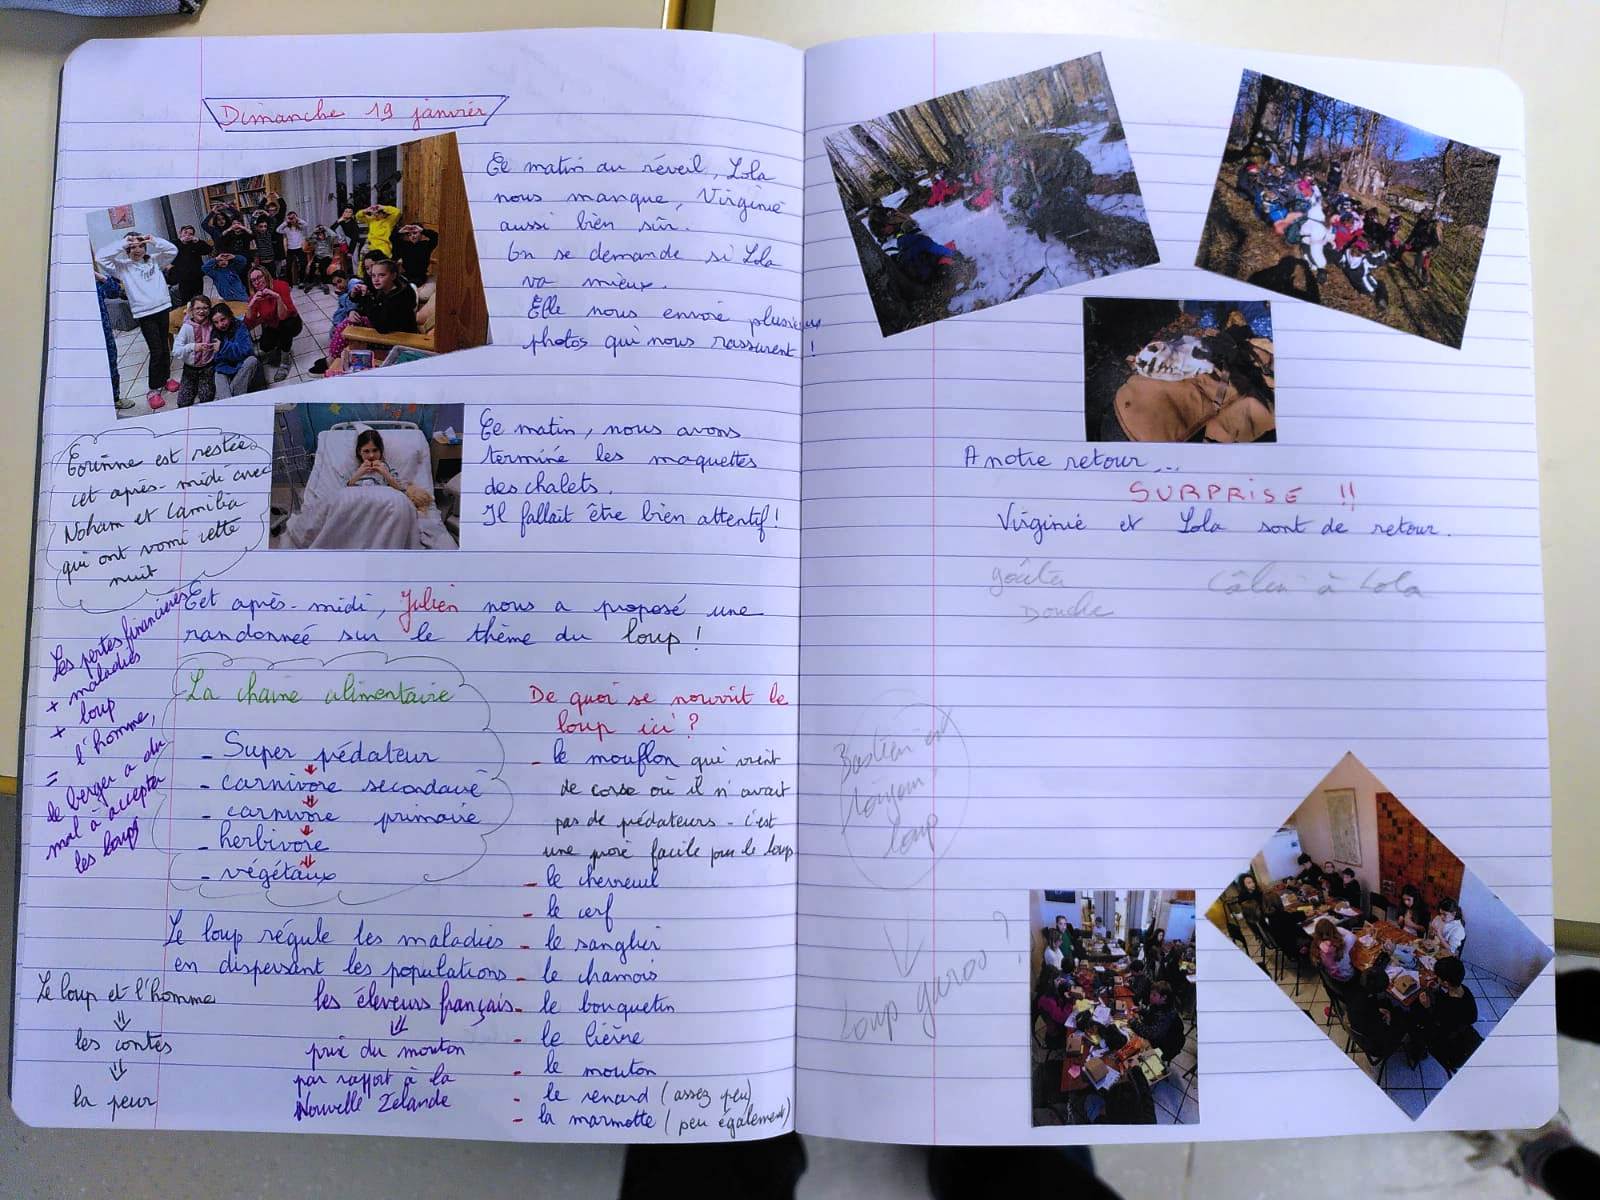 Dimanche 19 janvier
Ce matin au réveil, Lola
nous manque, Virginie
aussi bien sûr.
On se demande si Lola
va mieux.
Elle nous envoie plusieurs
photos qui nous rassurent !
Corinne est restée
cet après-midi avec
Noham et Camilia
qui ont vomi cette
nuit
Ce matin, nous avons
terminé les maquettes
des chalets.
Il fallait être bien attentif !
Cet après-midi, Julien nous a proposé une
randonneé sur le thème du loup !
Les pertes financières
+ maladies
+ loup
= l'homme,
le berger a du
mal à accepter
les loups
La chaine alimentaire
- Super pédateur
- carnivore secondaire
- carnivore primaire
- herbivore
- végétaux
Le loup régule les maladies
en dispersant les populations
Le loup et l'homme
les contes
la peur
les éleveurs français
prix du mouton
par rapport à la
Nouvelle Zelande
De quoi se nourrit le
loup ici ?
- le mouflon qui vient
de corse où il n'avait
pas de prédateurs - c'est
une proie facile pour le loup
- le chevreuil
- le cerf
- le sanglier
- le chamois
- le bouquetin
- le lièvre
- le mouton
- le renard (assez peu)
- la marmotte (peu également)
A notre retour...
SURPRISE !!
Virginie et Lola sont de retour.
goûter
Douche
Câlin à Lola
Bastien est
loup
Loup garou ?